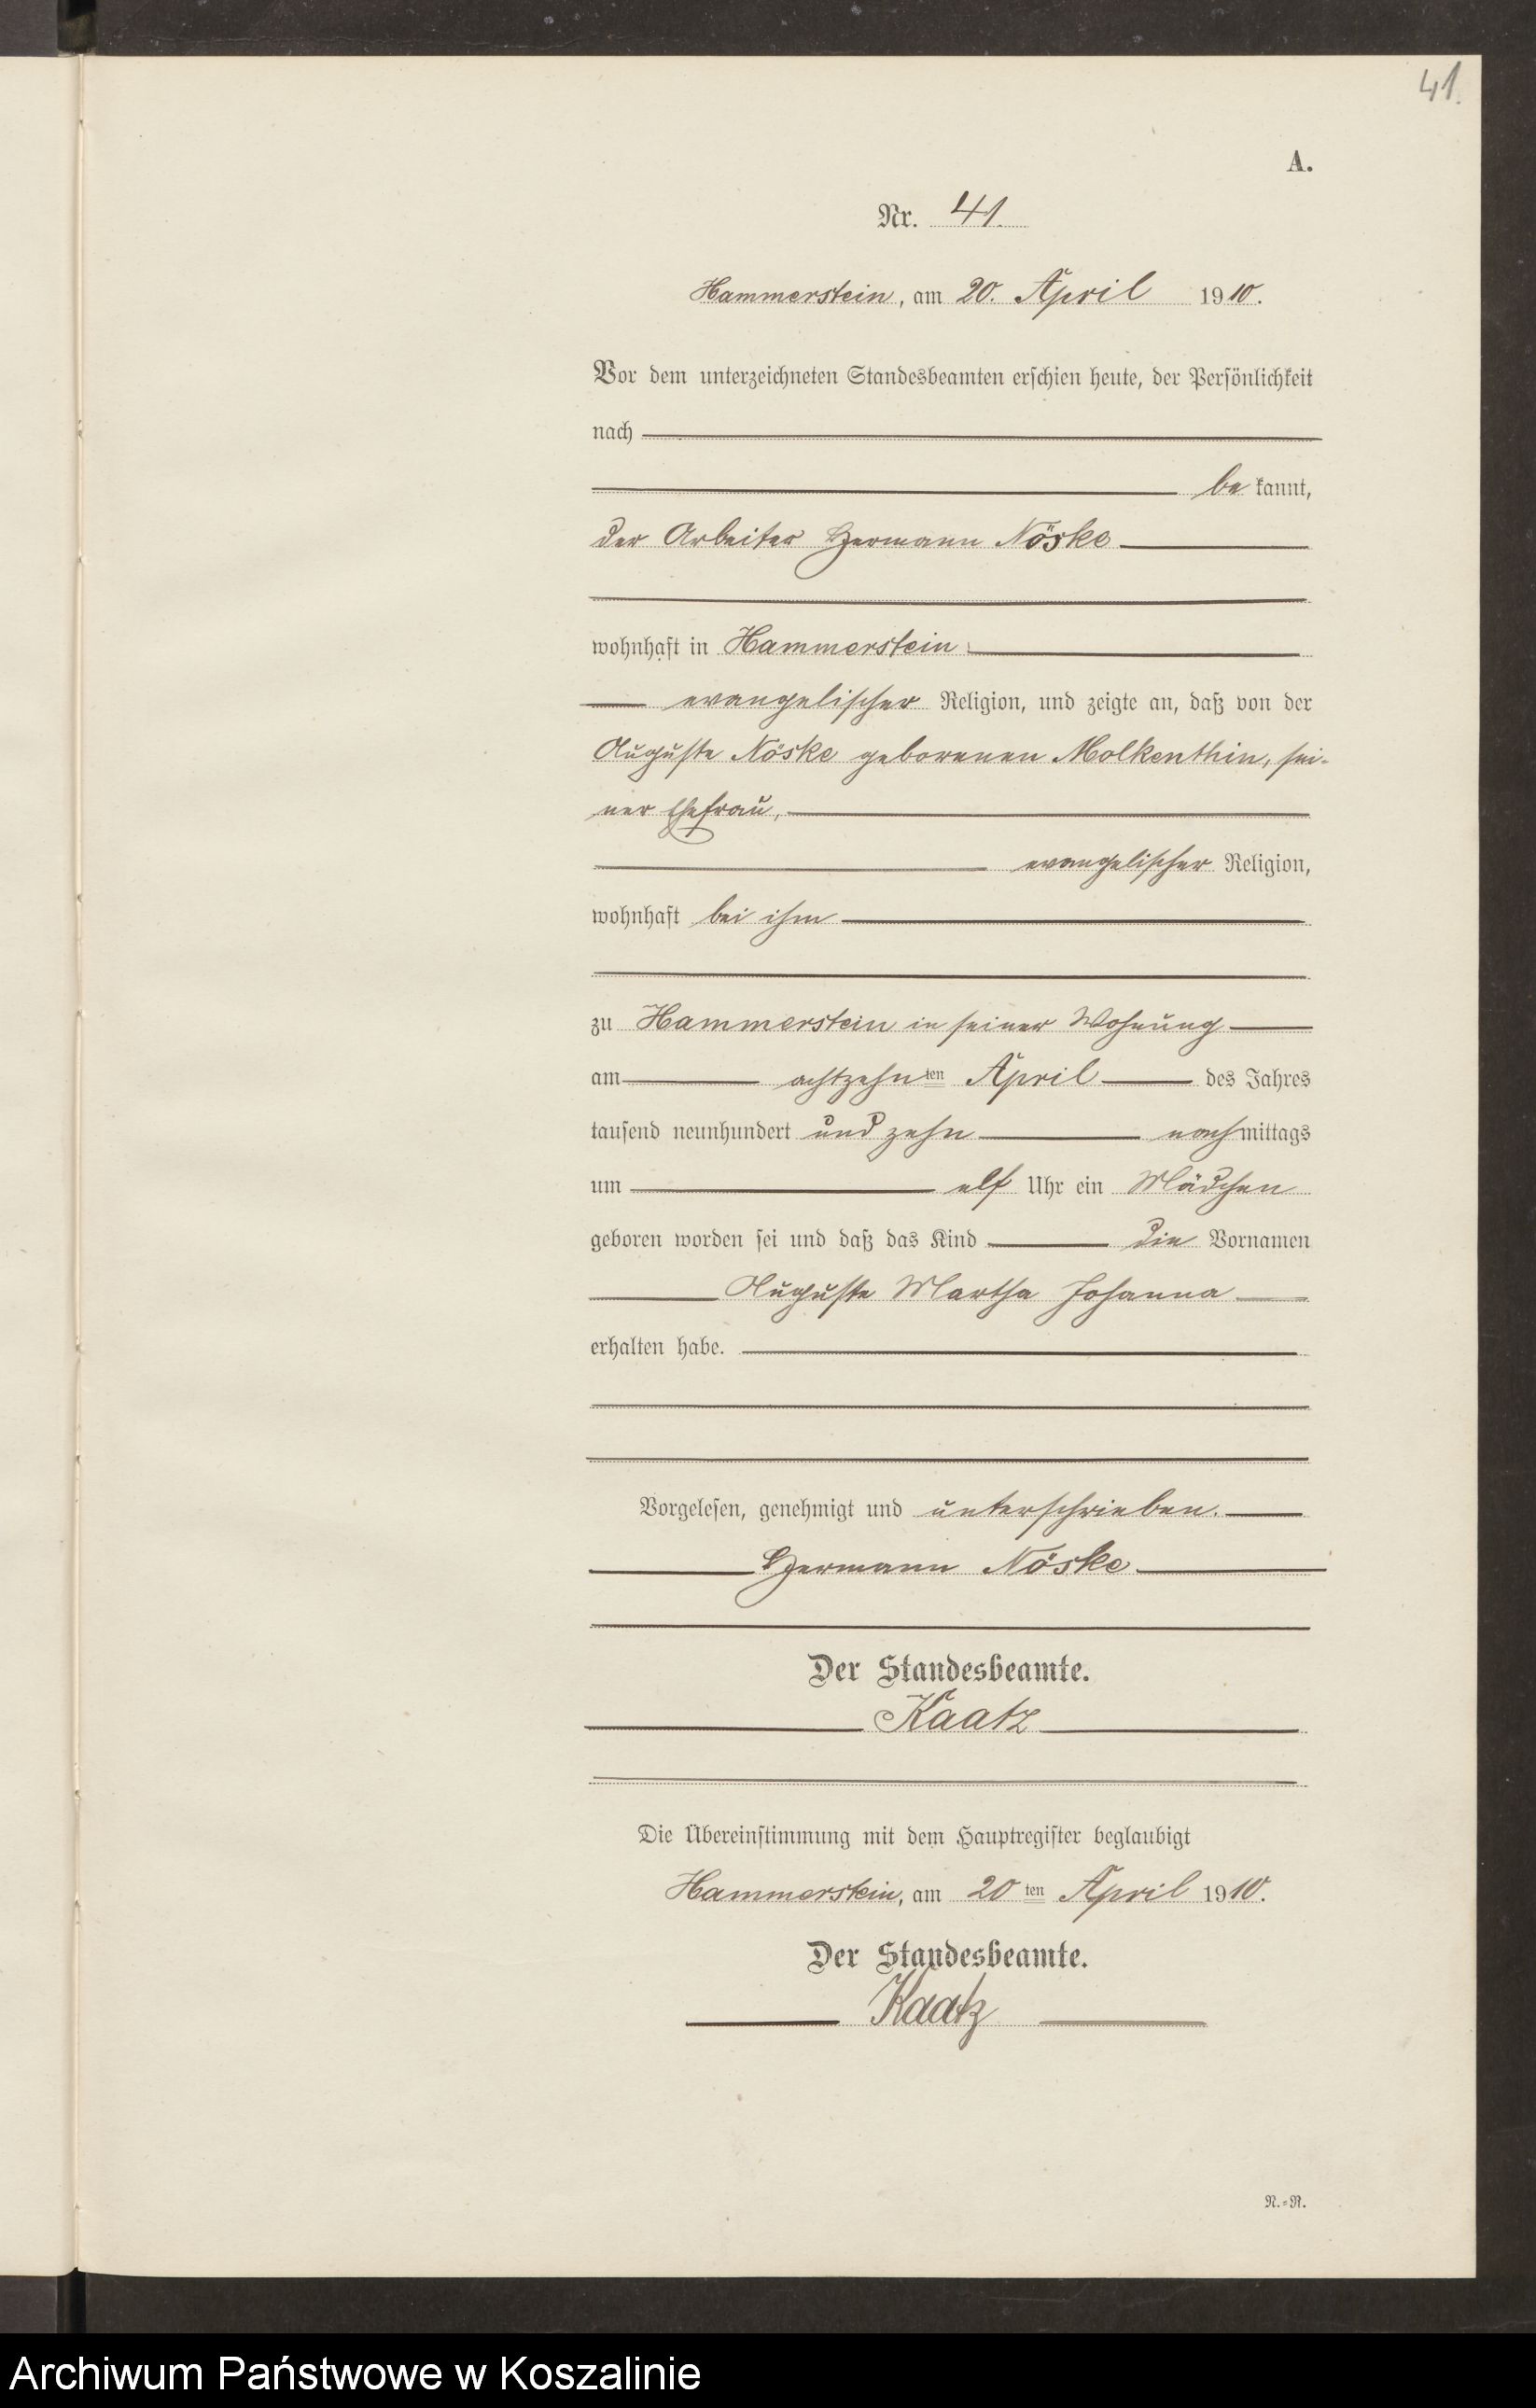 41.
A.
Nr. 41.
Hammerstein, am 20. April 1910.
Vor dem unterzeichneten Standesbeamten erschien heute, der Persönlichkeit
nach
be kannt,
der Arbeiter Hermann Nöske
wohnhaft in Hammerstein
evangelischer Religion, und zeigte an, daß von der
Auguste Nöske geborenen Molkenthin, sei-
ner Ehefrau,
evangelischer Religion,
wohnhaft bei ihm
zu Hammerstein in seiner Wohnung
am achtzehnten April des Jahres
tausend neunhundert und zehn nachmittags
um elf Uhr ein Mädchen
geboren worden sei und daß das Kind die Vornamen
Auguste Martha Johanna
erhalten habe.
Vorgelesen, genehmigt und unterschrieben.
Hermann Nöske
Der Standesbeamte.
Kaatz
Die Übereinstimmung mit dem Hauptregister beglaubigt
Hammerstein, am 20ten April 1910.
Der Standesbeamte.
Kaatz
N.=R.
Archiwum Państwowe w Koszalinie